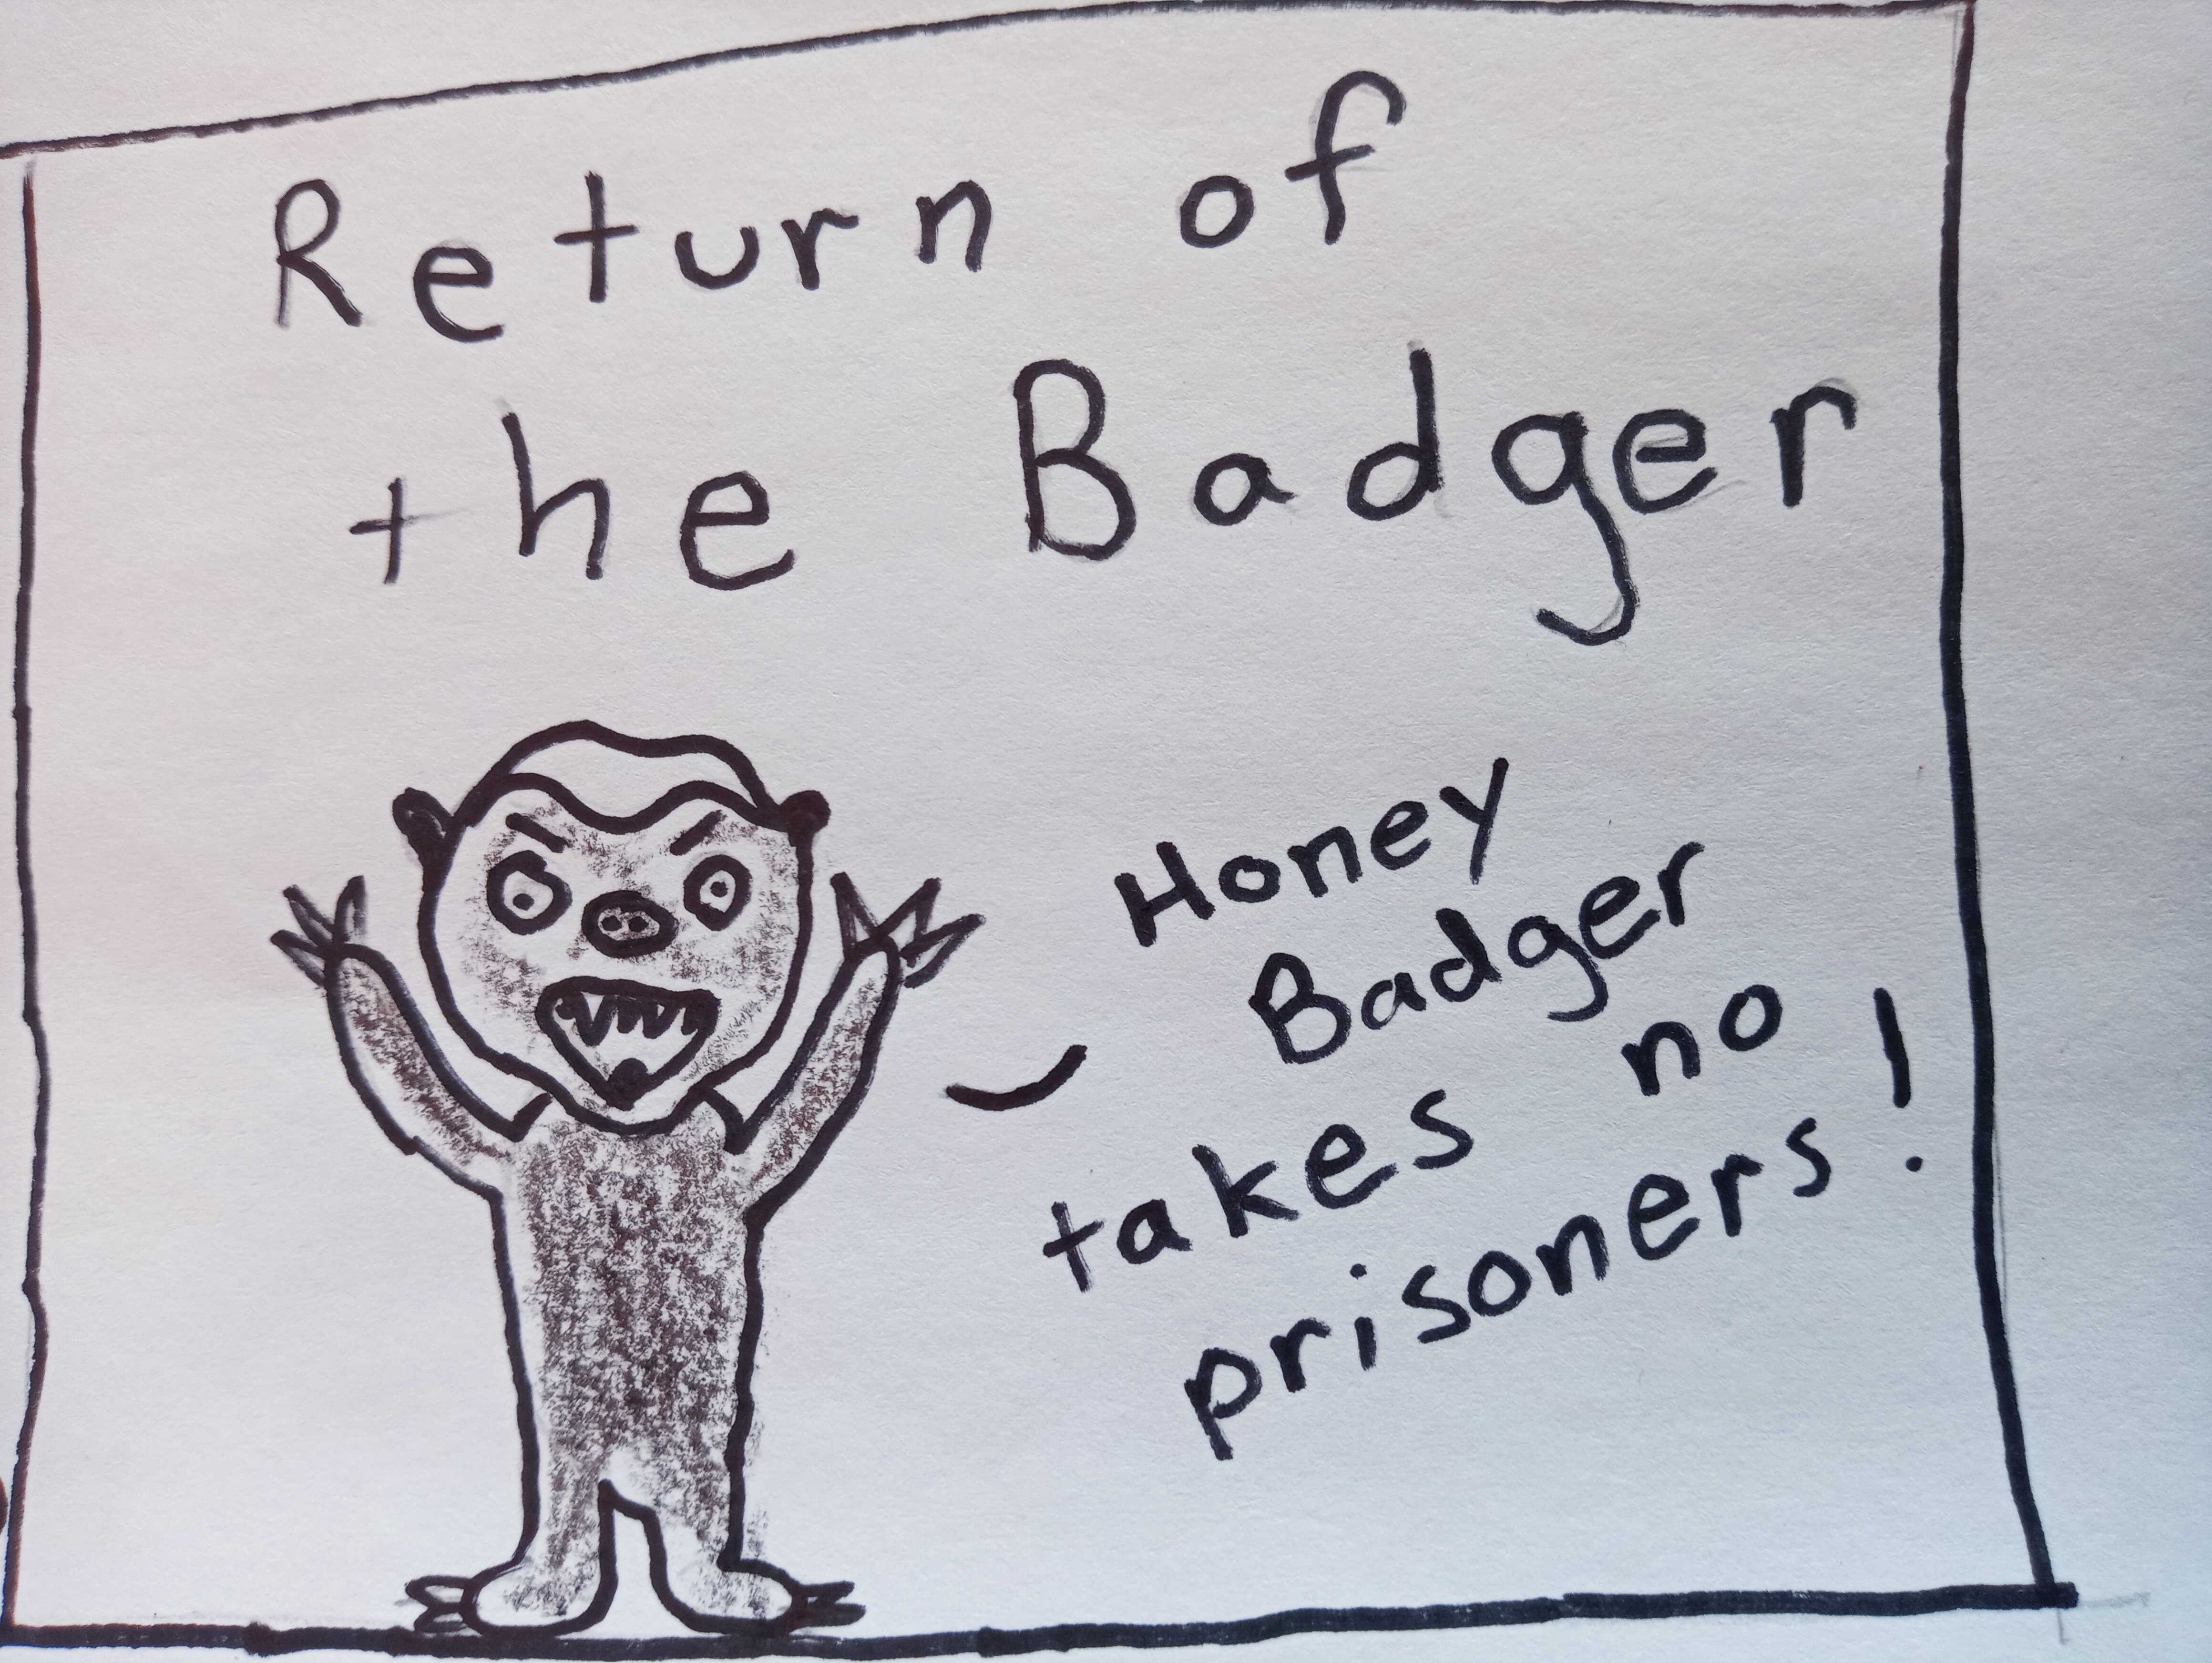 Return of
the Badger
Honey
Badger
takes no
prisoners!